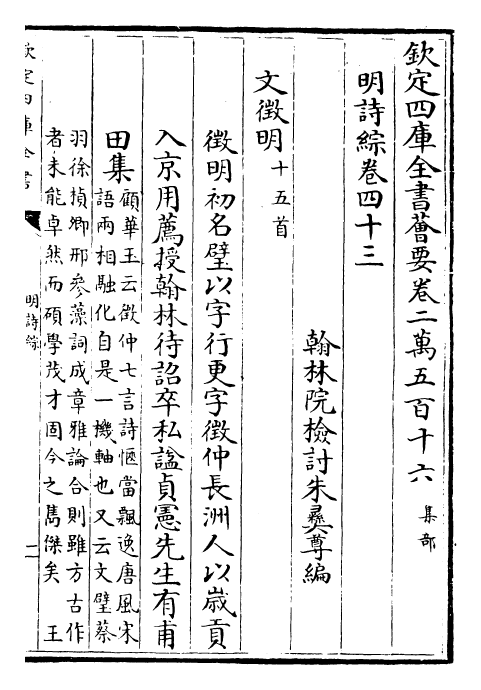 欽定四庫全書薈要卷二萬五百十六 集部
明詩綜卷四十三
翰林院檢討朱彞尊編
文徵明十五首
徵明初名璧以字行更字徵仲長洲人以嵗貢
入京用薦授翰林待詔卒私諡貞憲先生有甫
田集顧華玉云徵仲七言詩愜當飄逸唐風宋
語兩相融化自是一機軸也又云文璧蔡
羽徐禎卿邢參藻詞成章雅論合則雖方古作
者未能卓然而碩學茂才固今之雋傑矣 王
欽定四庫全書
明詩綜
一